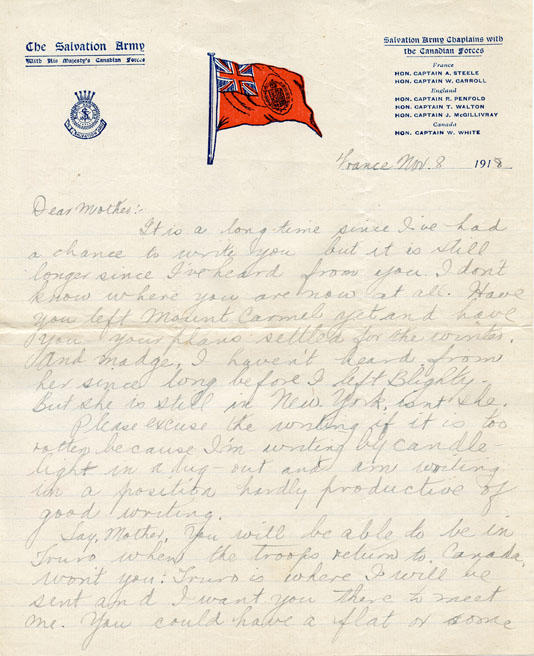 The Salvation Army
With His Majesty's Canadian Forces
Salvation Army Chaplains with
the Canadian Forces
France
HON. CAPTAIN A. STEELE
HON. CAPTAIN W. CARROLL
England
HON. CAPTAIN R. PENFOLD
HON. CAPTAIN T. WALTON
HON. CAPTAIN J. McGILLIVRAY
Canada
HON. CAPTAIN W. WHITE
France Nov. 8 1918
Dear Mother:-
It is a long time since I've had
a chance to write you but it is still
longer since I've heard from you. I don't
know where you are now at all. Have
you left Mount Carmel yet and have
you your plans settled for the winter.
And Madge, I haven't heard from
her since long before I left Blighty.
But she is still in New York, isn't she.
Please excuse the writing if it is too
rotten because I'm writing by candle-
light in a dug-out and am writing
in a position hardly productive of
good writing.
Say, Mother, You will be able to be in
Truro when the troops return to Canada,
won't you: Truro is where I will be
sent and I want you there to meet
me. You could have a flat or some